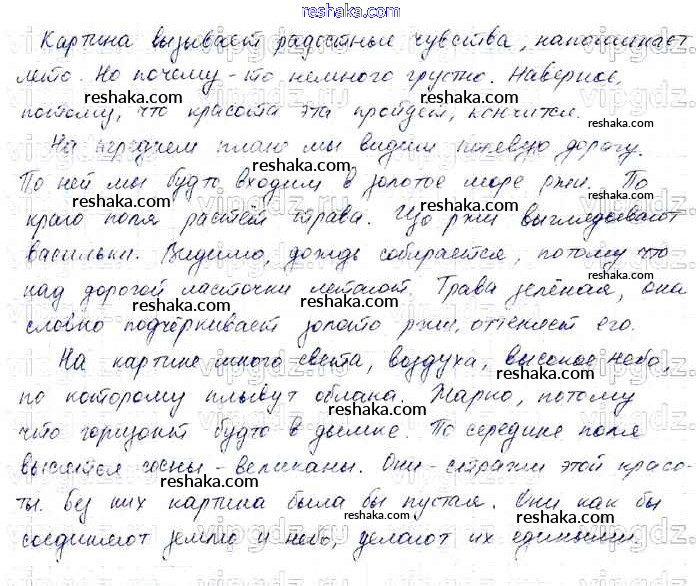 reshaka.com
Картина вызывает радостные чувства, напоминает
лето. Но почему-то немного грустно. Наверное,
reshaka.com
потому, что красота эта пройдет, кончится.
reshaka.com
На переднем плане мы видим полевую дорогу.
reshaka.com
По ней мы будто входим в золотое море ржи. По
reshaka.com
краю поля растет трава. Изо ржи выглядывают
reshaka.com
васильки. Видимо, дождь собирается, потому что
reshaka.com
над дорогой ласточки летают. Трава зелёная, она
reshaka.com
словно подчёркивает золото ржи, оттеняет его.
reshaka.com
На картине много света, воздуха, высокое небо,
reshaka.com
по которому плывут облака. Жарко, потому
reshaka.com
что горизонт будто в дымке. По середине поля
reshaka.com
высятся сосны - великаны. Они - стражи этой красо-
reshaka.com
ты. Без них картина была бы пустая. Они как бы
reshaka.com
соединяют землю и небо, делают их едиными.
reshaka.com